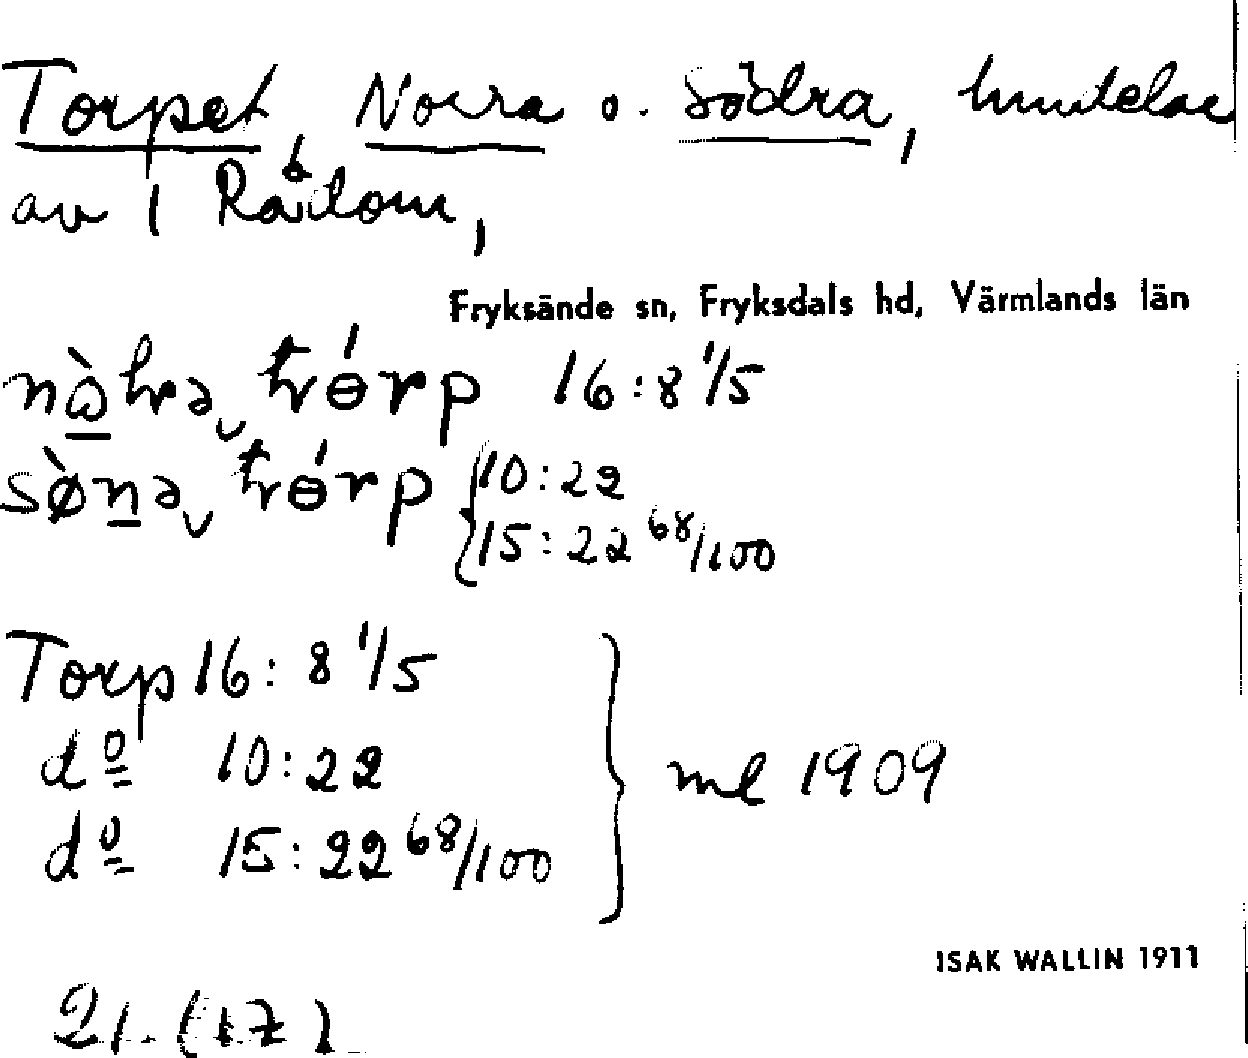 Torpet, Norra o. Södra, hmdelar
av 1 Rådom,
Fryksände sn, Fryksdals hd, Värmlands län
16:8 1/5
10:22
15:22 68/100
Torp 16:8 1/5
do 10:22
do 15:22 68/100
ml 1909
ISAK WALLIN 1911
21. (17)